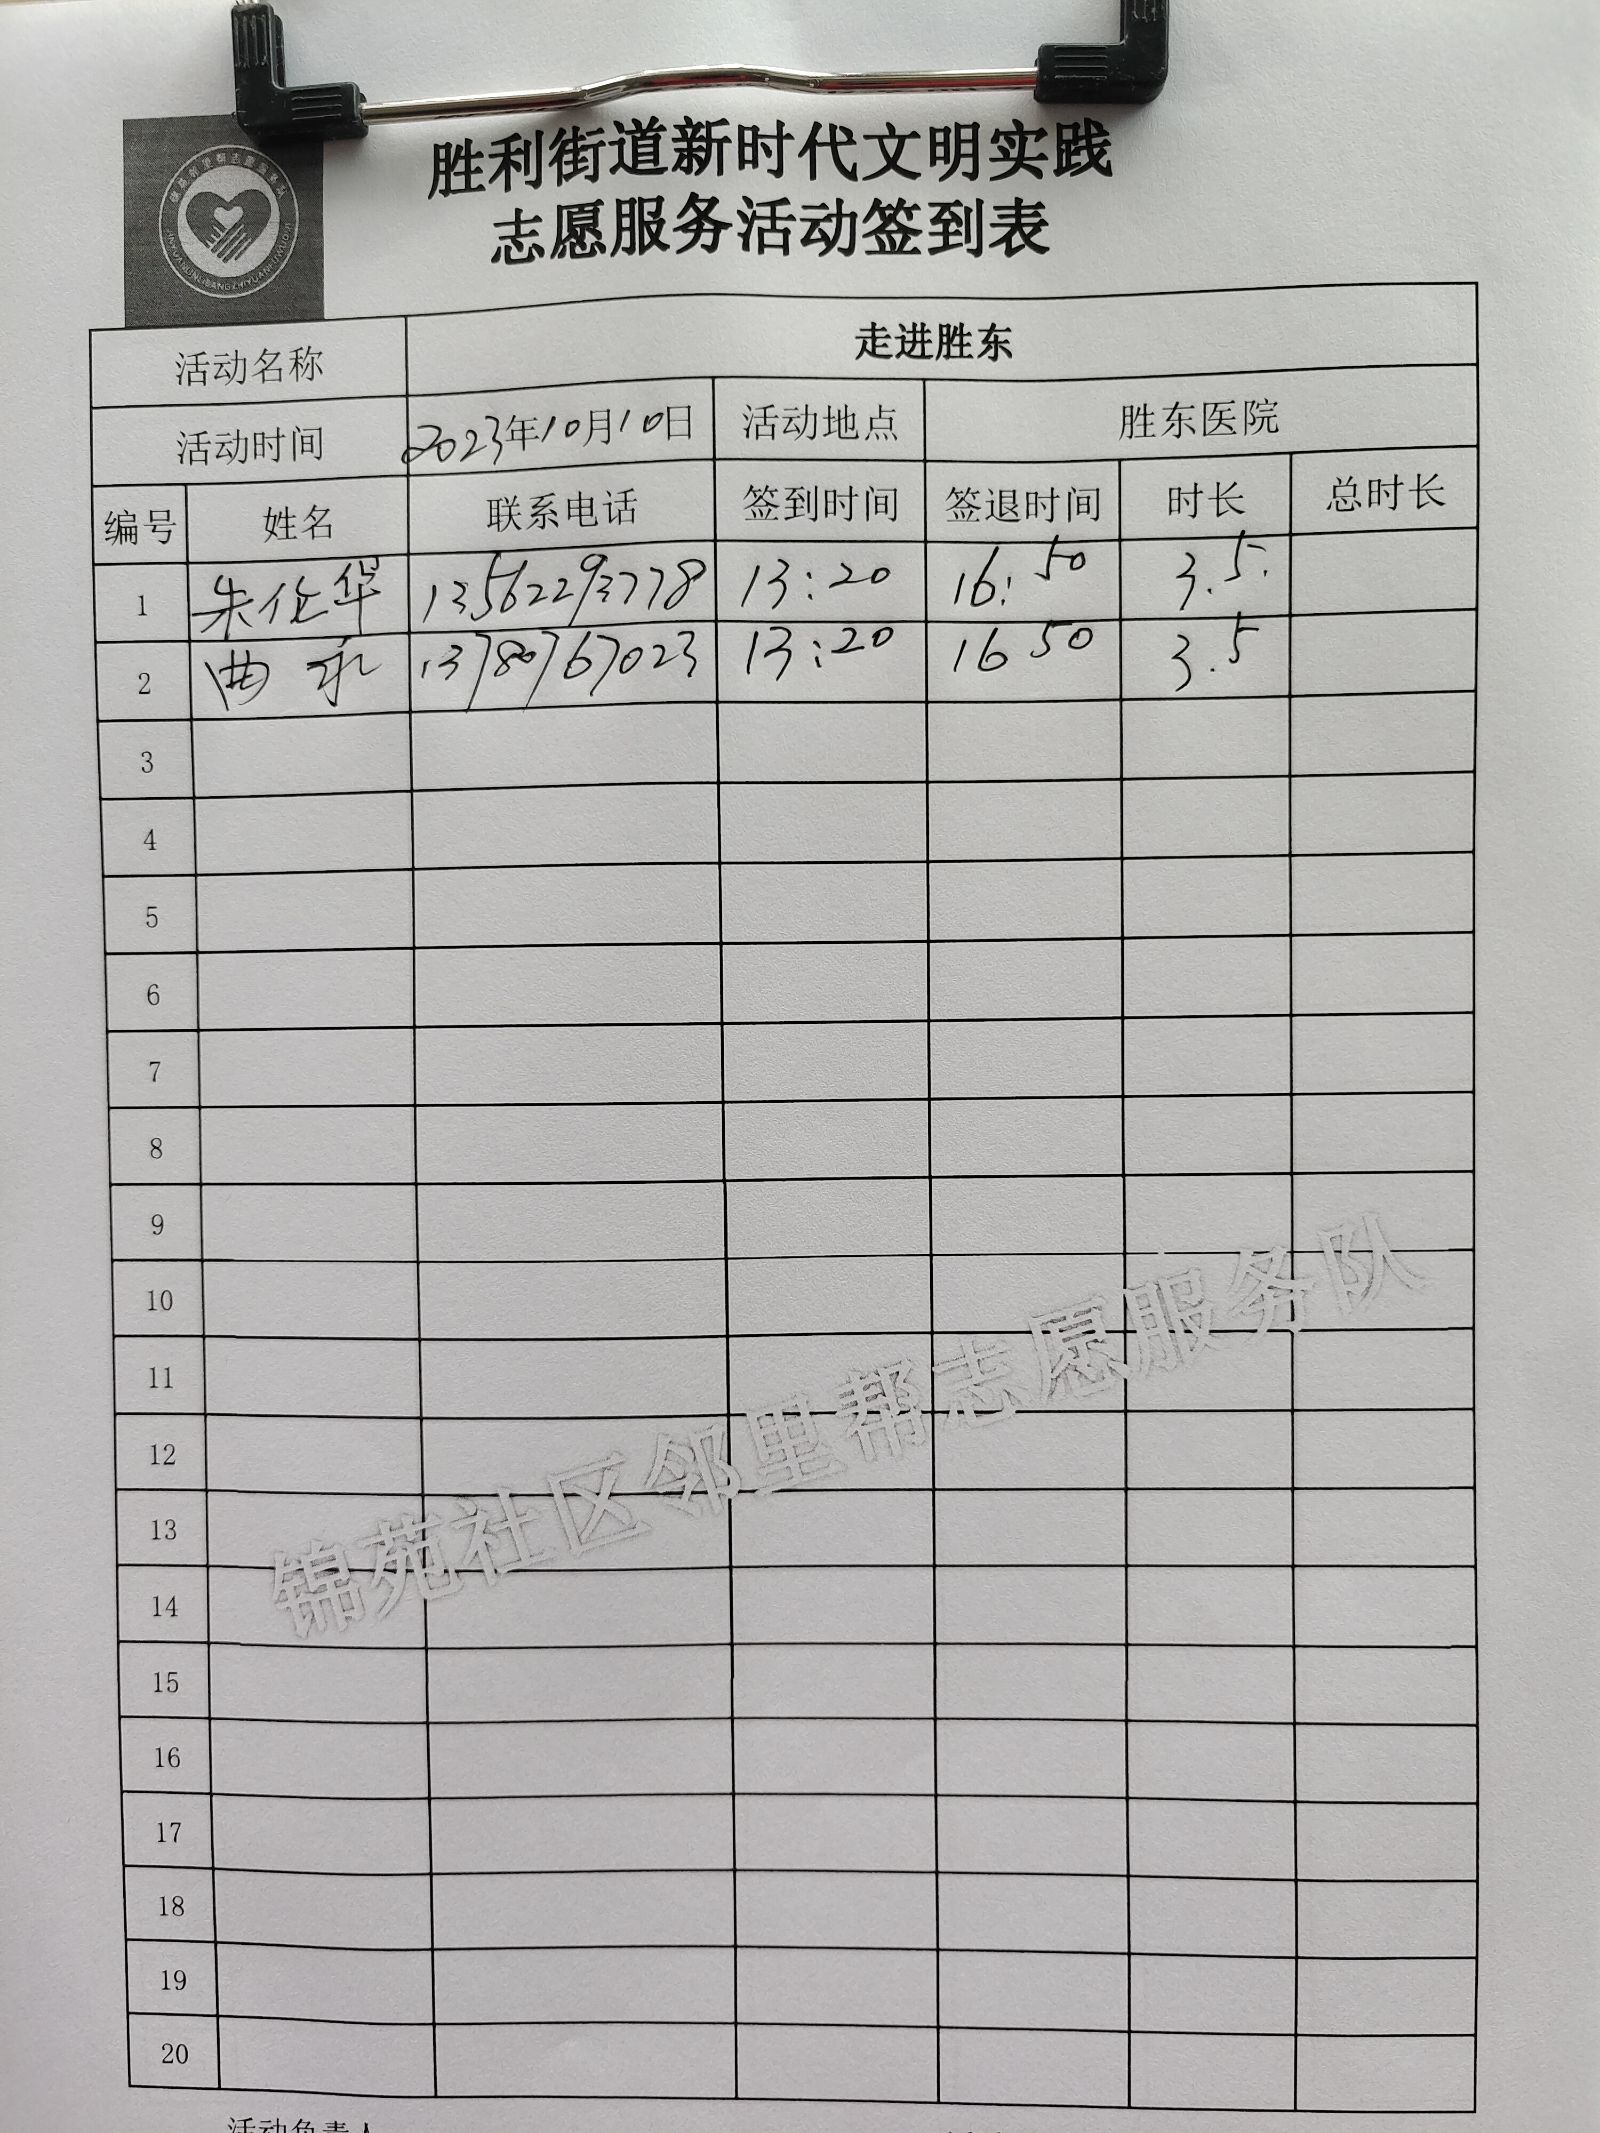 胜利街道新时代文明实践
志愿服务活动签到表
活动名称 走进胜东
活动时间 2023年10月10日 活动地点 胜东医院
编号 姓名 联系电话 签到时间 签退时间 时长 总时长
1 朱伦华 13562293778 13:20 16:50 3.5.
2 曲 13780767023 13:20 16 50 3.5
3
4
5
6
7
8
9
10
11
12
13
14
15
16
17
18
19
20
锦苑社区邻里帮志愿服务队
活动负责人